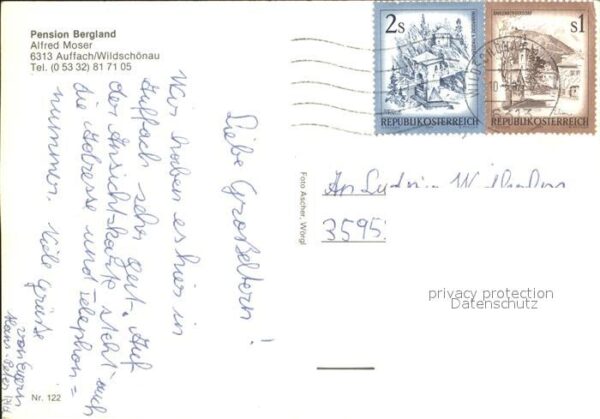 Pension Bergland
Alfred Moser
6313 Auffach/Wildschönau
Tel. (0 53 32) 81 71 05
2s
REPUBLIK ÖSTERREICH
s1
REPUBLIK ÖSTERREICH
6313
Liebe Großeltern!
Wir haben es hier in
Auffach sehr gut. Auf
der Ansichtskarte steht auch
die Adresse und Telephon=
nummer. Viele Grüße
von Euern
Hans-Peter
An
3595
Foto Ascher, Wörgl
privacy protection
Datenschutz
Nr. 122